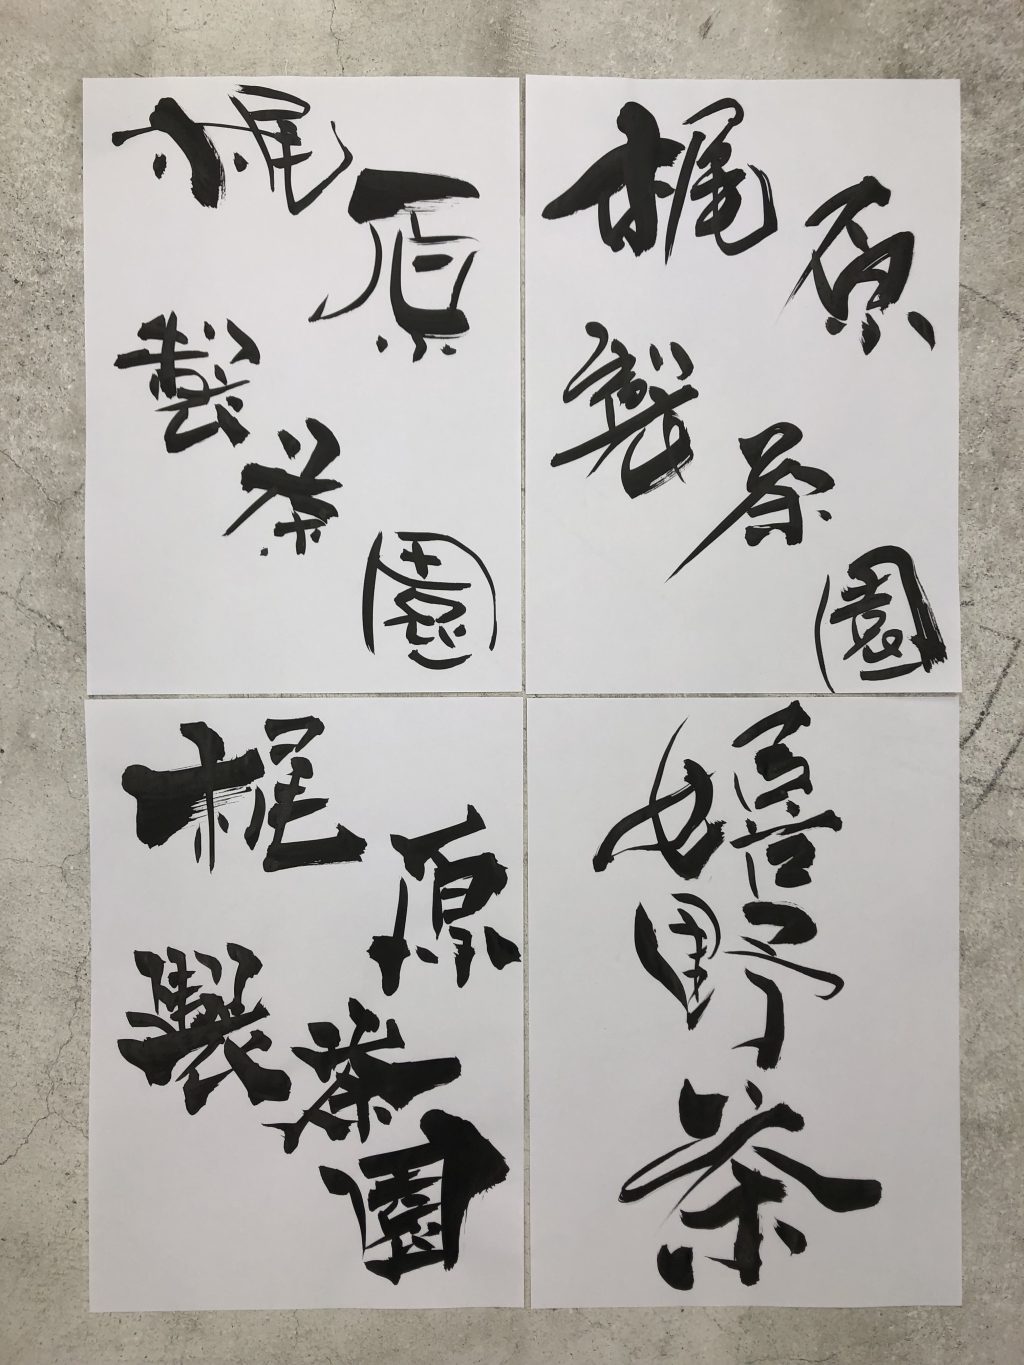 梶原
製茶園
梶原
製茶園
梶原
製茶園
嬉野茶